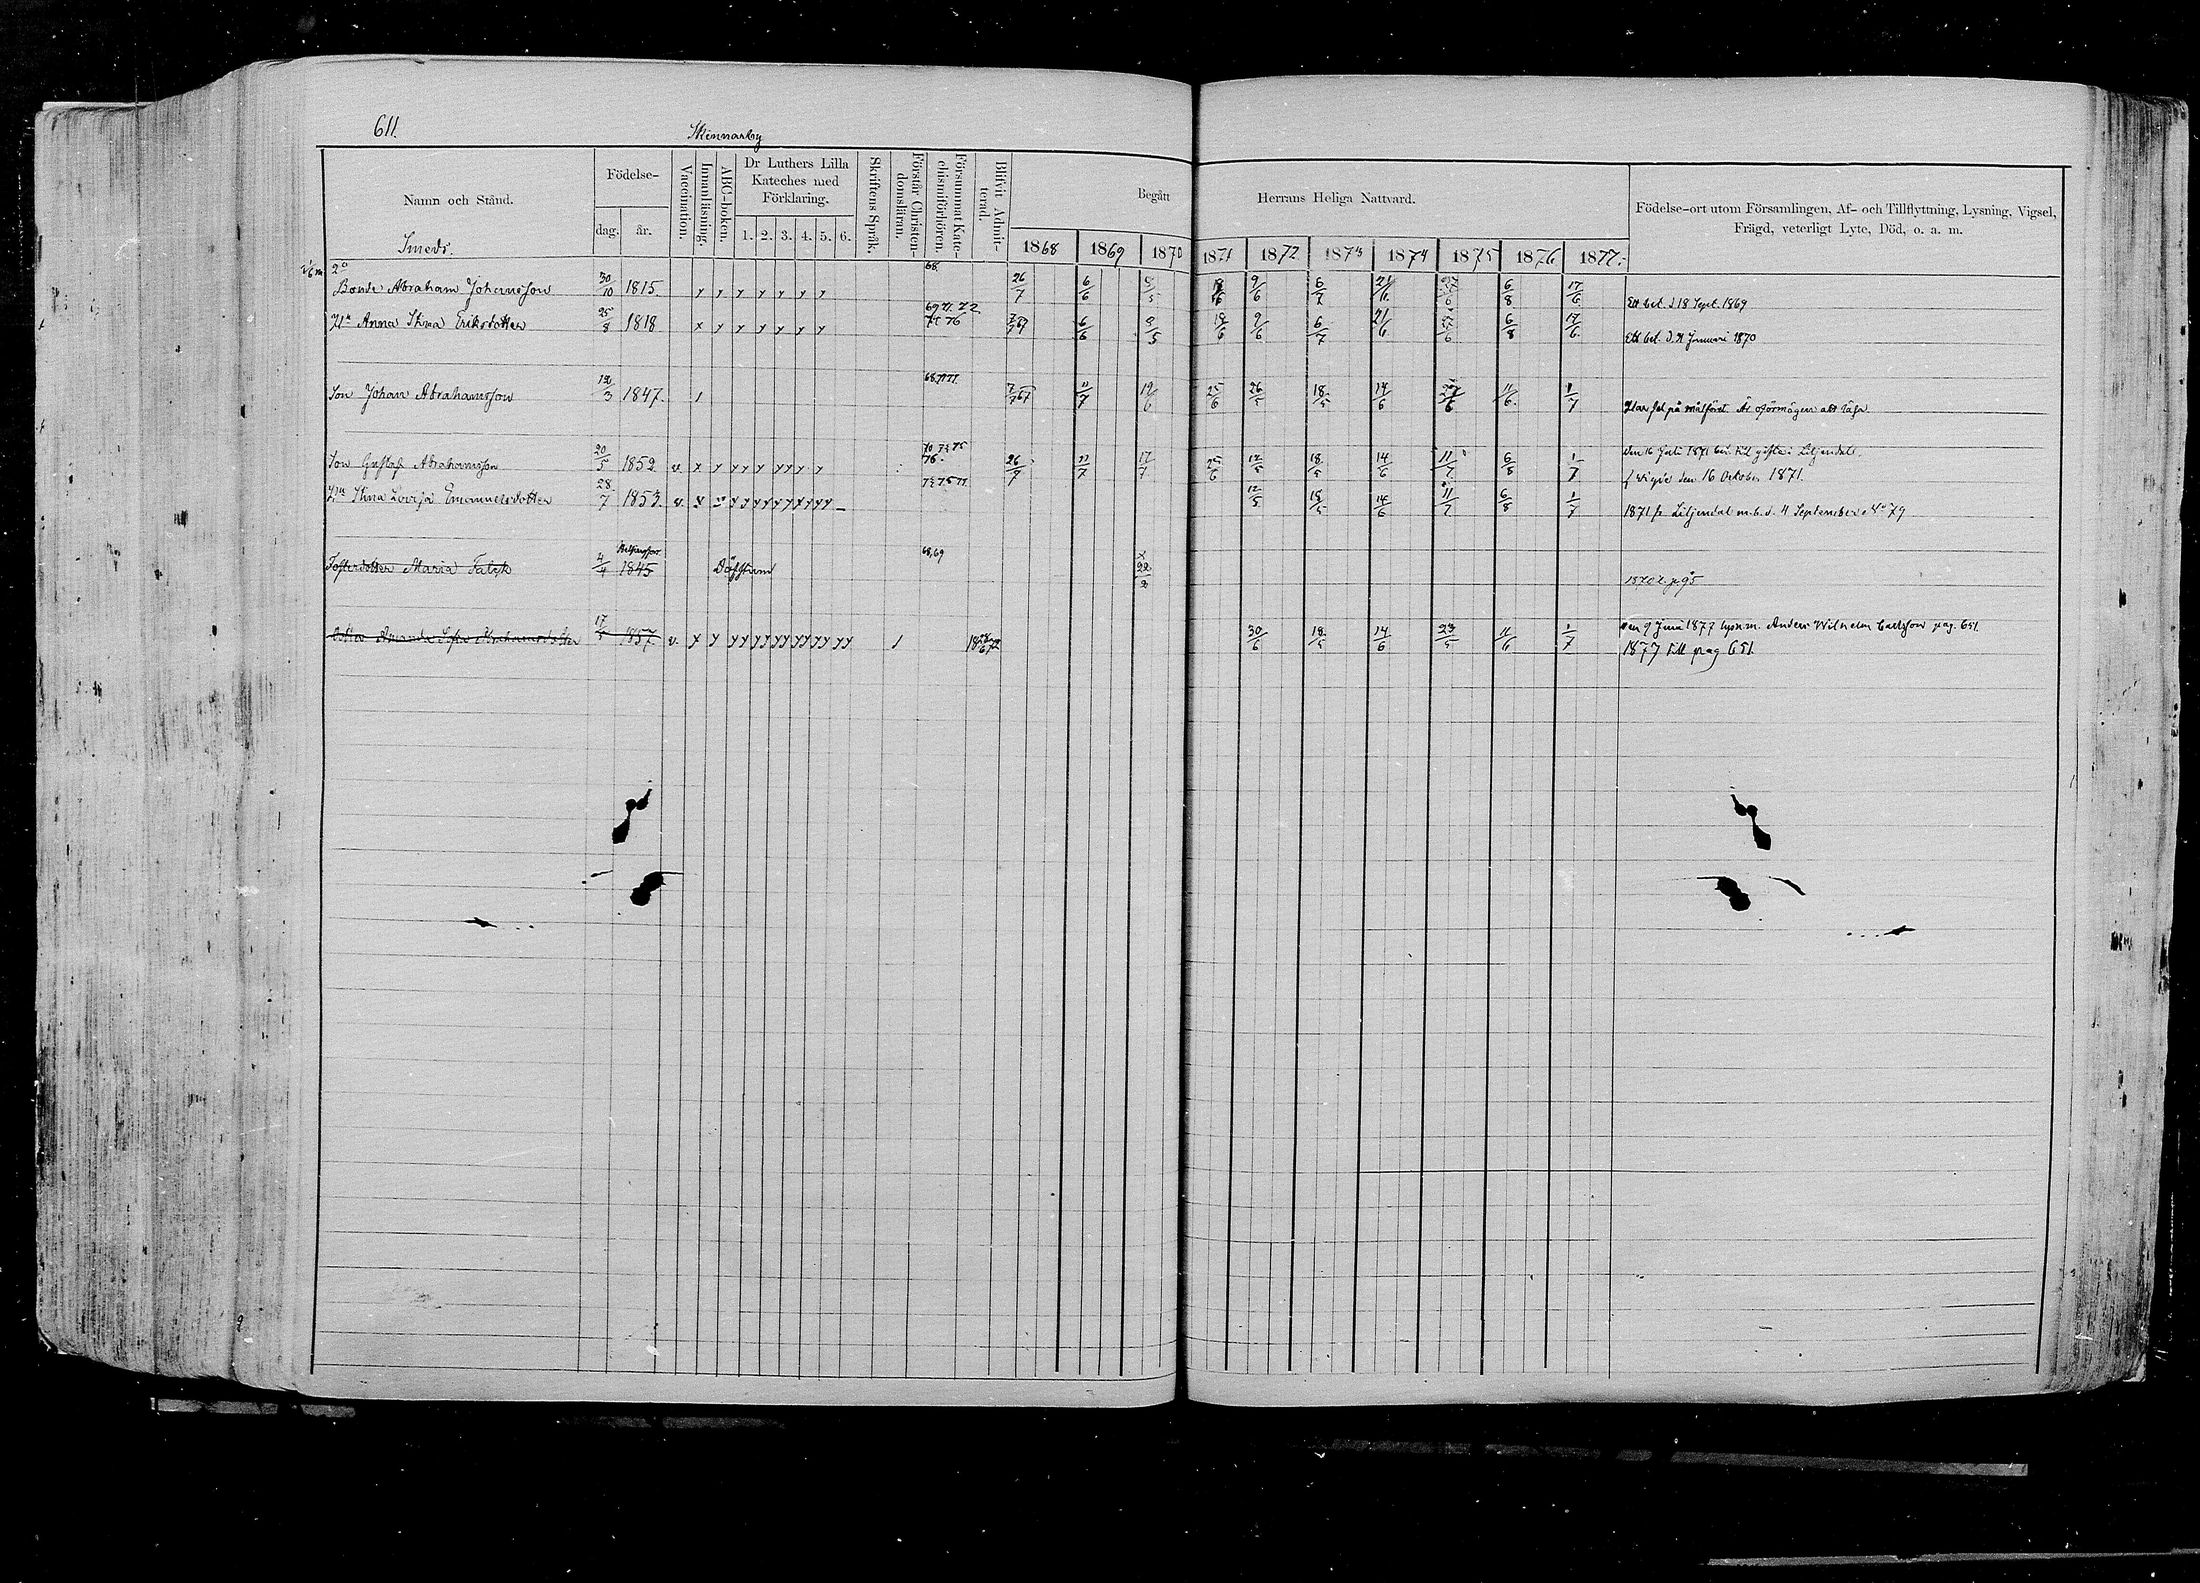 611.
Skinnarby
Namn och Stånd.
Födelse-
dag.
år.
Vaccination.
Innanläsning.
ABC-boken.
Dr Luthers Lilla
Kateches med
Förklaring.
1. 2. 3. 4. 5. 6.
Skriftens Språk.
Förstår Christen-
domsläran.
Försummat Kate-
chismiförhören.
Blifvit Admit-
terad.
Begått Herrans Heliga Nattvard.
1868 1869 1870 1871 1872 1873 1874 1875 1876 1877.
Födelse-ort utom Församlingen, Af- och Tillflyttning, Lysning, Vigsel,
Frägd, veterligt Lyte, Död, o. a. m.
Smeds.
Bonde Abraham Johansson 30/10 1815. 68. 26/7 6/6 9/6 6/7 21/6 6/8 17/6 Ett bet. d. 18 Sept. 1869
Hu Anna Stina Eriksdotter 25/8 1818 6/6 9/5 18/6 9/6 6/7 21/6 6/8 17/6 Ett bet. d. 21 Januari 1870
Son Johan Abrahamsson 12/3 1847. 11/7 19/6 25/6 26/5 18/5 14/6 11/6 1/7 Har fel på målföret. Är oförmögen att läsa
den 16 Juli 1871 bev. till gifte i Liljendal.
Son Gustaf Abrahamsson 20/5 1852 v. 26/7 11/7 17/7 25/6 12/5 18/5 14/6 11/7 6/8 1/7 vigde den 16 October 1871.
Hu Stina Lovisa Emanuelsdotter 28/7 1853. v. 12/5 18/5 14/6 11/7 6/8 1/7 1871 fr. Liljendal m. b. d. 4 September No 79
Fosterdotter Maria Falck 4/4 1845 Döfstum 68, 69 22/2 1870 t. p. 95
den 9 Juni 1877 lysn. m. Anders Wilhelm Carlsson pag. 651.
Dotter Amanda Sofia Abrahamsdotter 17/5 1857. v. 30/6 18/5 14/6 23/5 11/6 1/7 1877 till pag 651.